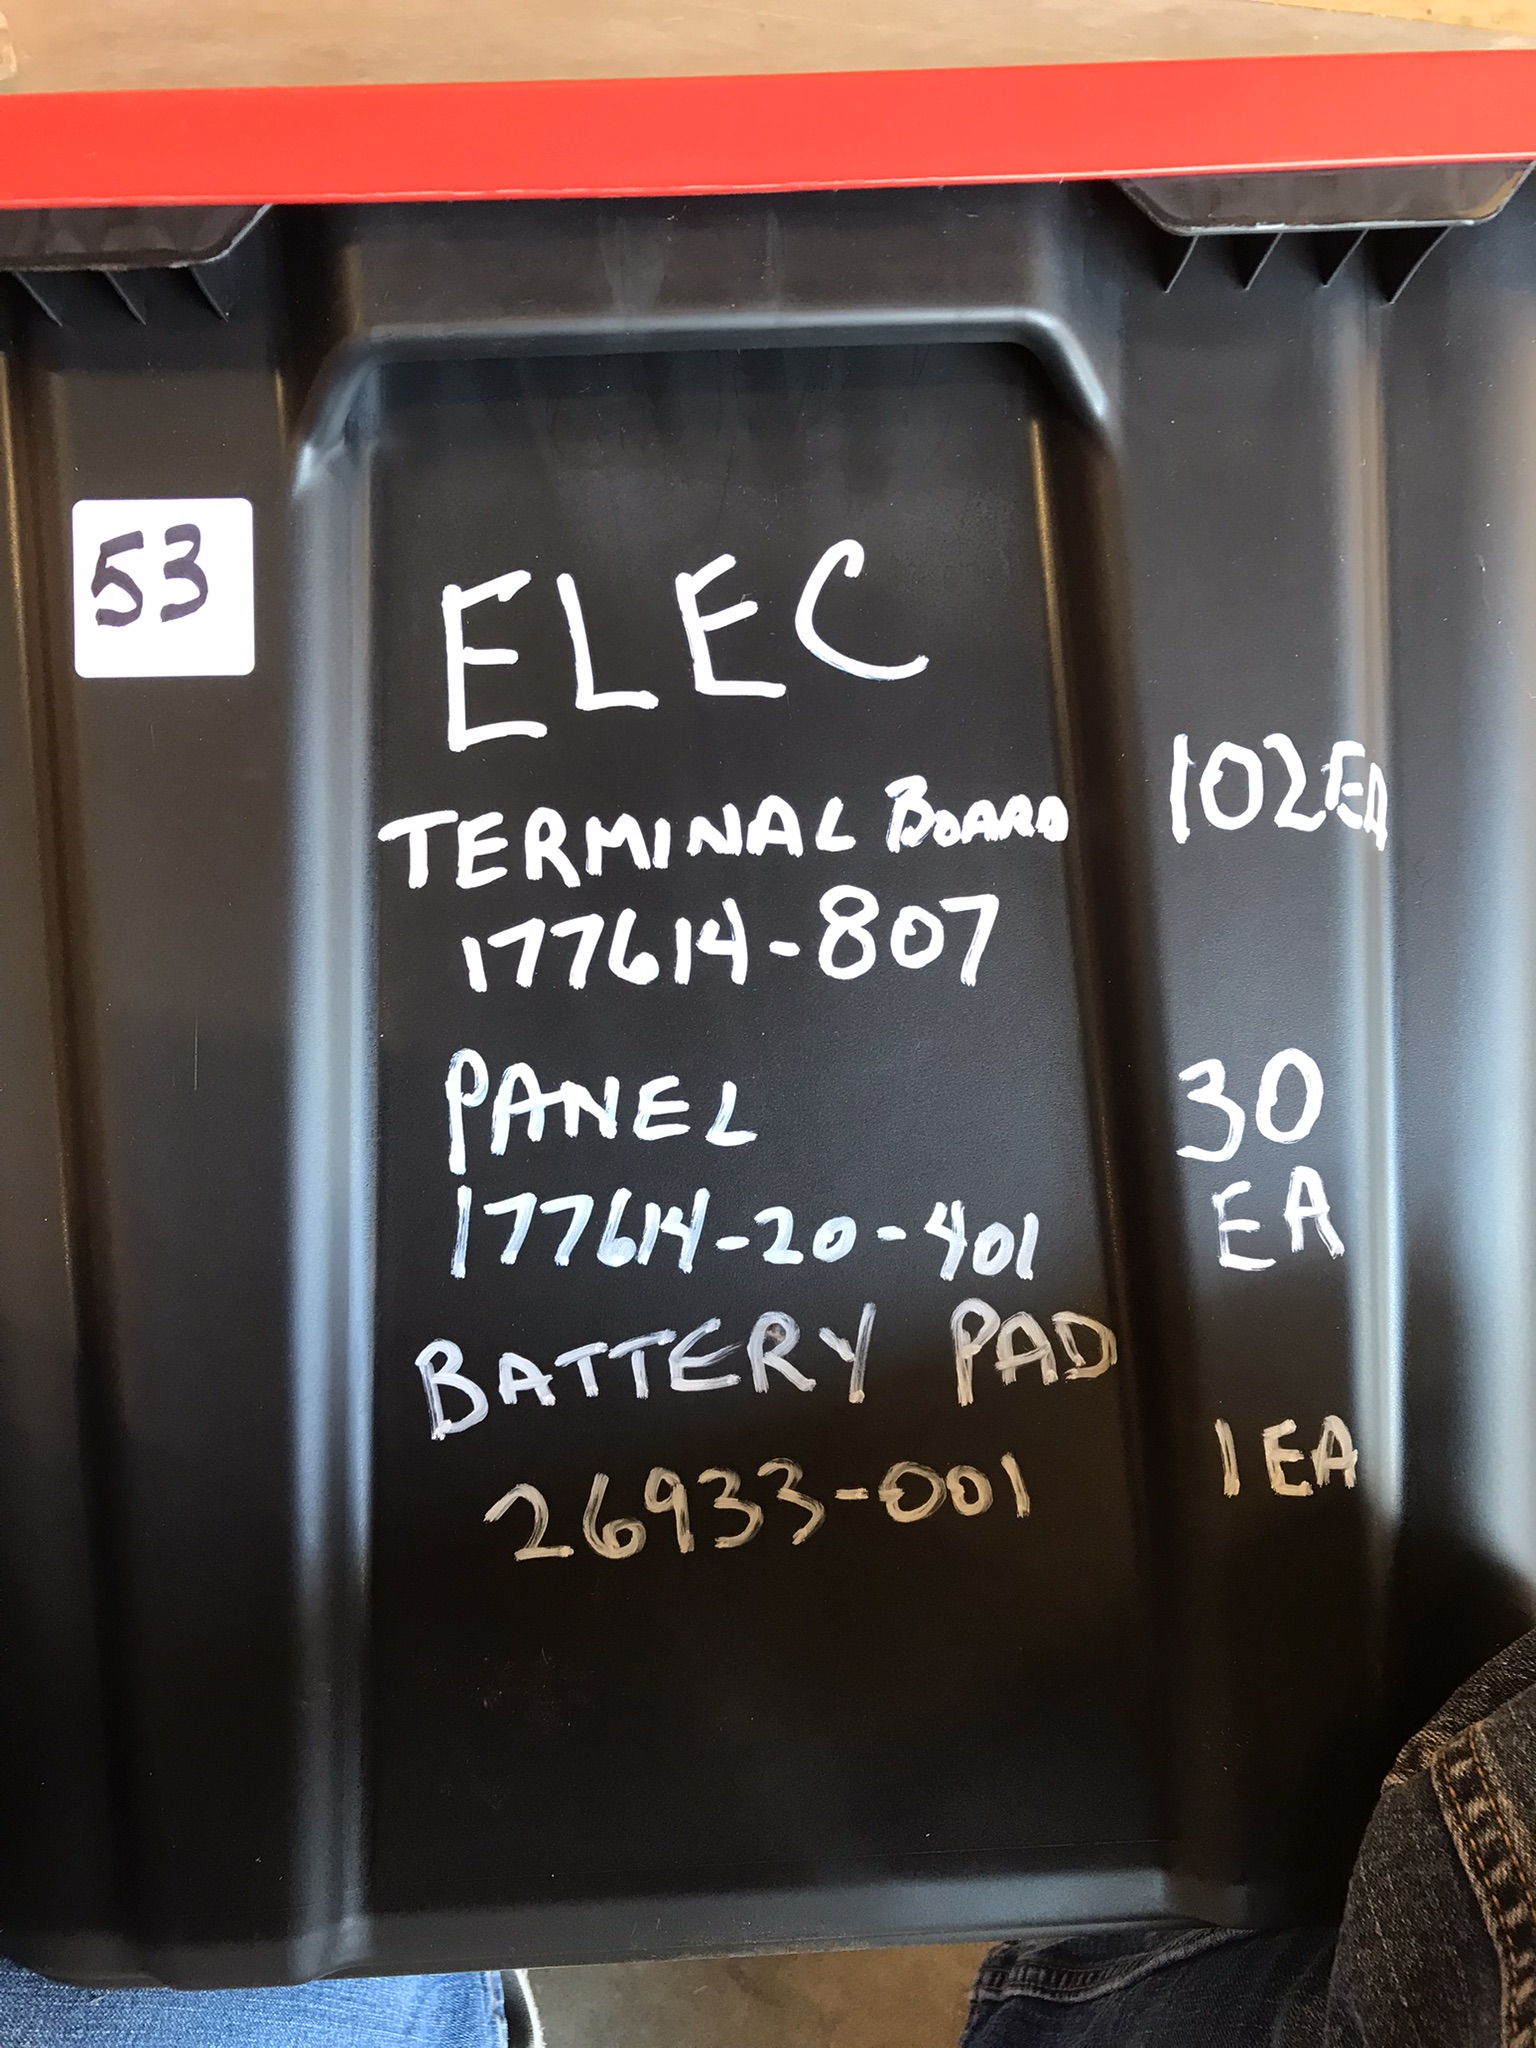 53
ELEC
TERMINAL BOARD 102EA
177614-807
PANEL 30
177614-20-401 EA
BATTERY PAD
26933-001 1EA